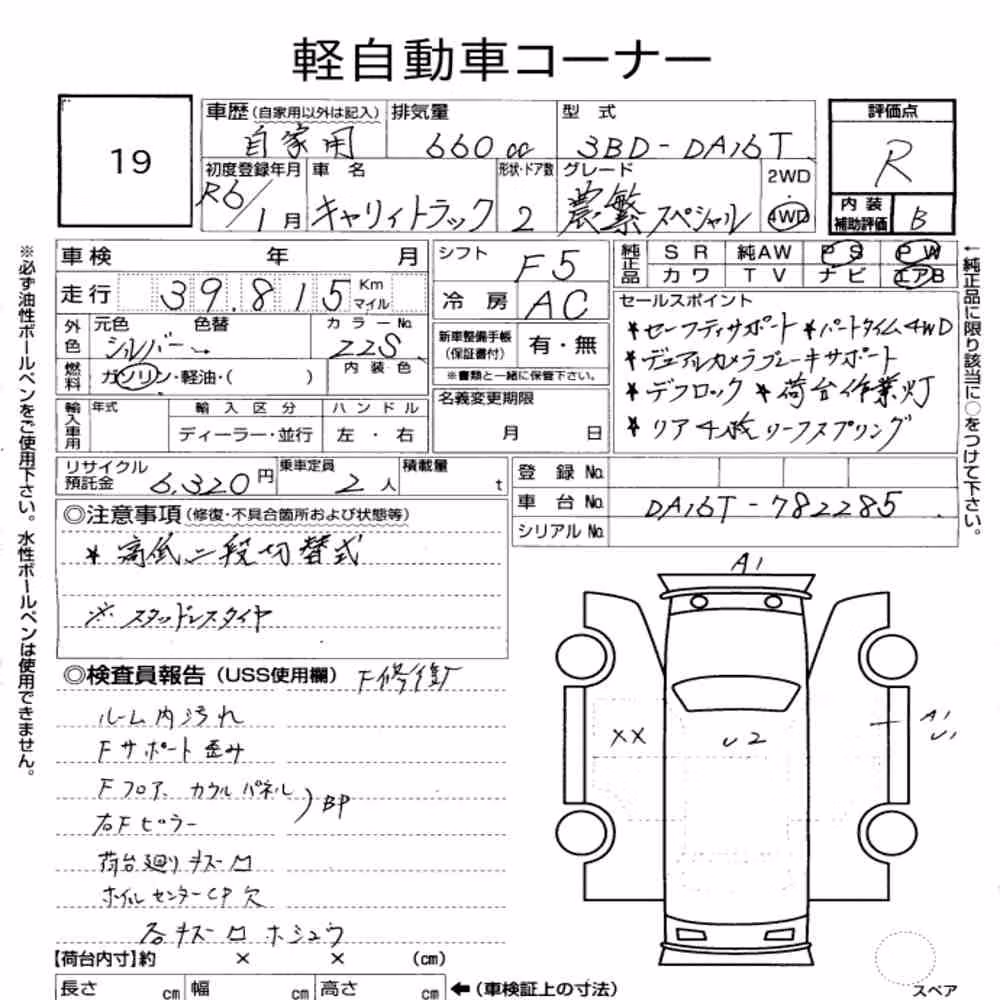 軽自動車コーナー
19
車歴(自家用以外は記入) 排気量 型式 評価点
自家用 660cc 3BD-DA16T R
初度登録年月 車名 形状・ドア数 グレード 2WD
R6/1月 キャリィトラック 2 農繁スペシャル 4WD
内装補助評価 B
車検 年 月 シフト F5
走行 39.815 Km マイル 冷房 AC
純正品 SR 純AW PS PW
カワ TV ナビ エアB
外色 元色 色替 カラーNo.
シルバー 22S
燃料 ガソリン・軽油・( ) 内装色
新車整備手帳(保証書付) 有・無
※書類と一緒に保管下さい。
セールスポイント
*セーフティサポート *パートタイム4WD
*デュアルカメラブレーキサポート
*デフロック *荷台作業灯
*リア4枚リーフスプリング
輸入車用 年式 輸入区分 ハンドル
ディーラー・並行 左・右
名義変更期限
月 日
リサイクル預託金 6,320円 乗車定員 2人 積載量 t
登録No.
車台No. DA16T-782285
シリアルNo.
◎注意事項(修復・不具合箇所および状態等)
*高低二段切替式
※スタッドレスタイヤ
◎検査員報告(USS使用欄) F修復
ルーム内汚れ
Fサポート歪み
Fフロア、カウルパネル
右Fピラー )BP
荷台廻りキズ凹
ホイルセンターCP欠
各キズ凹ホシュウ
A1
XX
U2
A1
U1
【荷台内寸】約 × × (cm)
長さ cm 幅 cm 高さ cm ←(車検証上の寸法)
スペア
※必ず油性ボールペンをご使用下さい。水性ボールペンは使用できません。
←純正品に限り該当に○をつけて下さい。